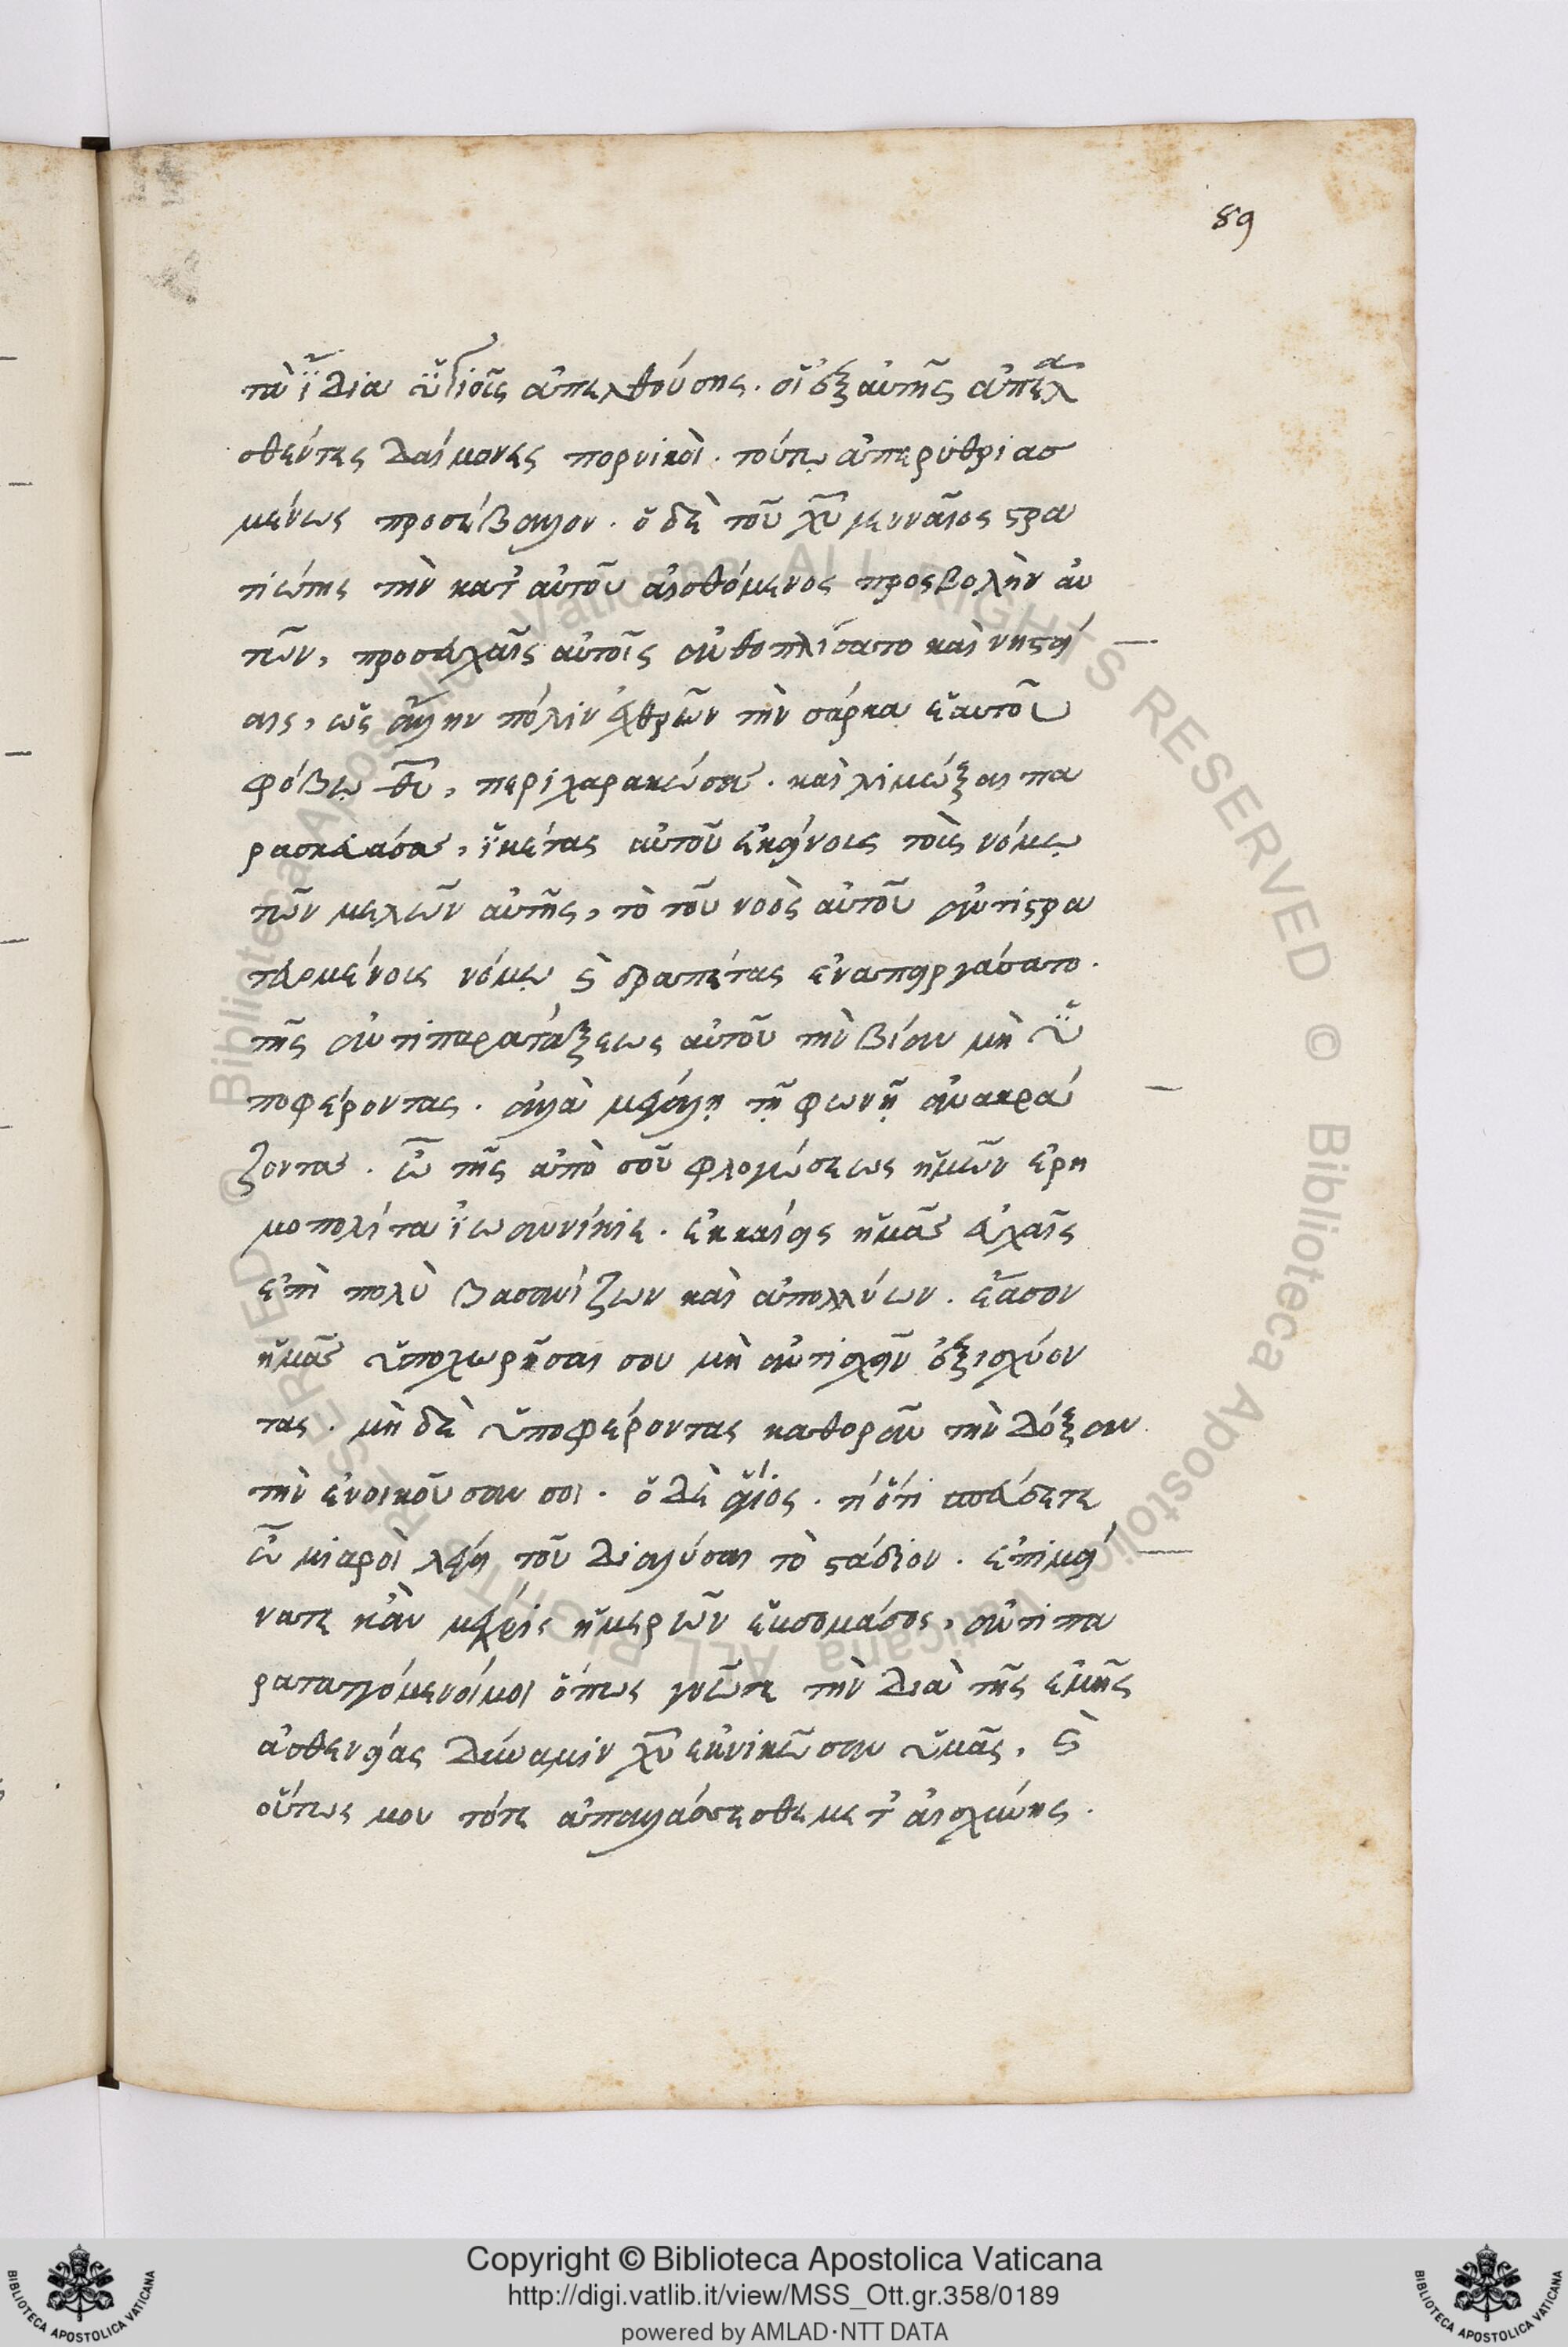 89
τὰ ἴδια ὑγιοῦς ἀπελθούσης. οἱ ἐξ αὐτῆς ἀπελα
σθέντες δαίμονες πορνικοὶ. τούτῳ ἀπερυθριασ
μένως προσέβαλον. ὁ δὲ τοῦ χυ γενναῖος στρα
τιώτης τὴν κατ' αὐτοῦ αἰσθόμενος προσβολὴν αὐ
τῶν, προσευχαῖς αὐτοῖς ἀνθοπλίσατο καὶ νηστεί
αις, ὡς ἄλλην πόλιν ἐχθρῶν τὴν σάρκα ἑαυτοῦ
φόβῳ θυ, περιχαρακώσας. καὶ λιμώξαι πα
ρασκευάσας, ἱκέτας αὐτοῦ ἐκείνους τοὺς νόμῳ
τῶν μελῶν αὐτῆς, τὸ τοῦ νοὸς αὐτοῦ ἀντιστρα
τευομένους νόμῳ καὶ δραπέτας ἐναπειργάσατο.
τῆς ἀντιπαρατάξεως αὐτοῦ τὴν βίαν μὴ ὑ
ποφέροντας. ἀλλὰ μεγάλῃ τῇ φωνῇ ἀνακρά
ζοντας. ὢ τῆς ἀπὸ σοῦ φλογώσεως ἡμῶν ἐρη
μοπολίτα ἰωαννίκιε. ἐκκαίεις ἡμᾶς εὐχαῖς
ἐπὶ πολὺ βασανίζων καὶ ἀπολλύων. ἔασον
ἡμᾶς ὑποχωρῆσαι σου μὴ ἀντισχεῖν ἐξισχύον
τας. μὴ δὲ ὑποφέροντας καθορᾶν τὴν δόξαν
τὴν ἐνοικοῦσαν σοι. ὁ δὲ ἅγιος. τί ὅτι σπεύδετε
ὦ μιαροὶ λέγει τοῦ διαλύσαι τὸ στάδιον. ἐπιμεί
νατε κἂν μέχρις ἡμερῶν ἑβδομάδος, ἀντιπα
ραταττόμενοί μοι ὅπως γνῶτε τὴν διὰ τῆς ἐμῆς
ἀσθενείας δύναμιν χυ ἐκνικῶσαν ὑμᾶς, καὶ
οὕτως μου τότε ἀπαλλάσσεσθε μετ' αἰσχύνης.
Copyright © Biblioteca Apostolica Vaticana
http://digi.vatlib.it/view/MSS_Ott.gr.358/0189
powered by AMLAD·NTT DATA